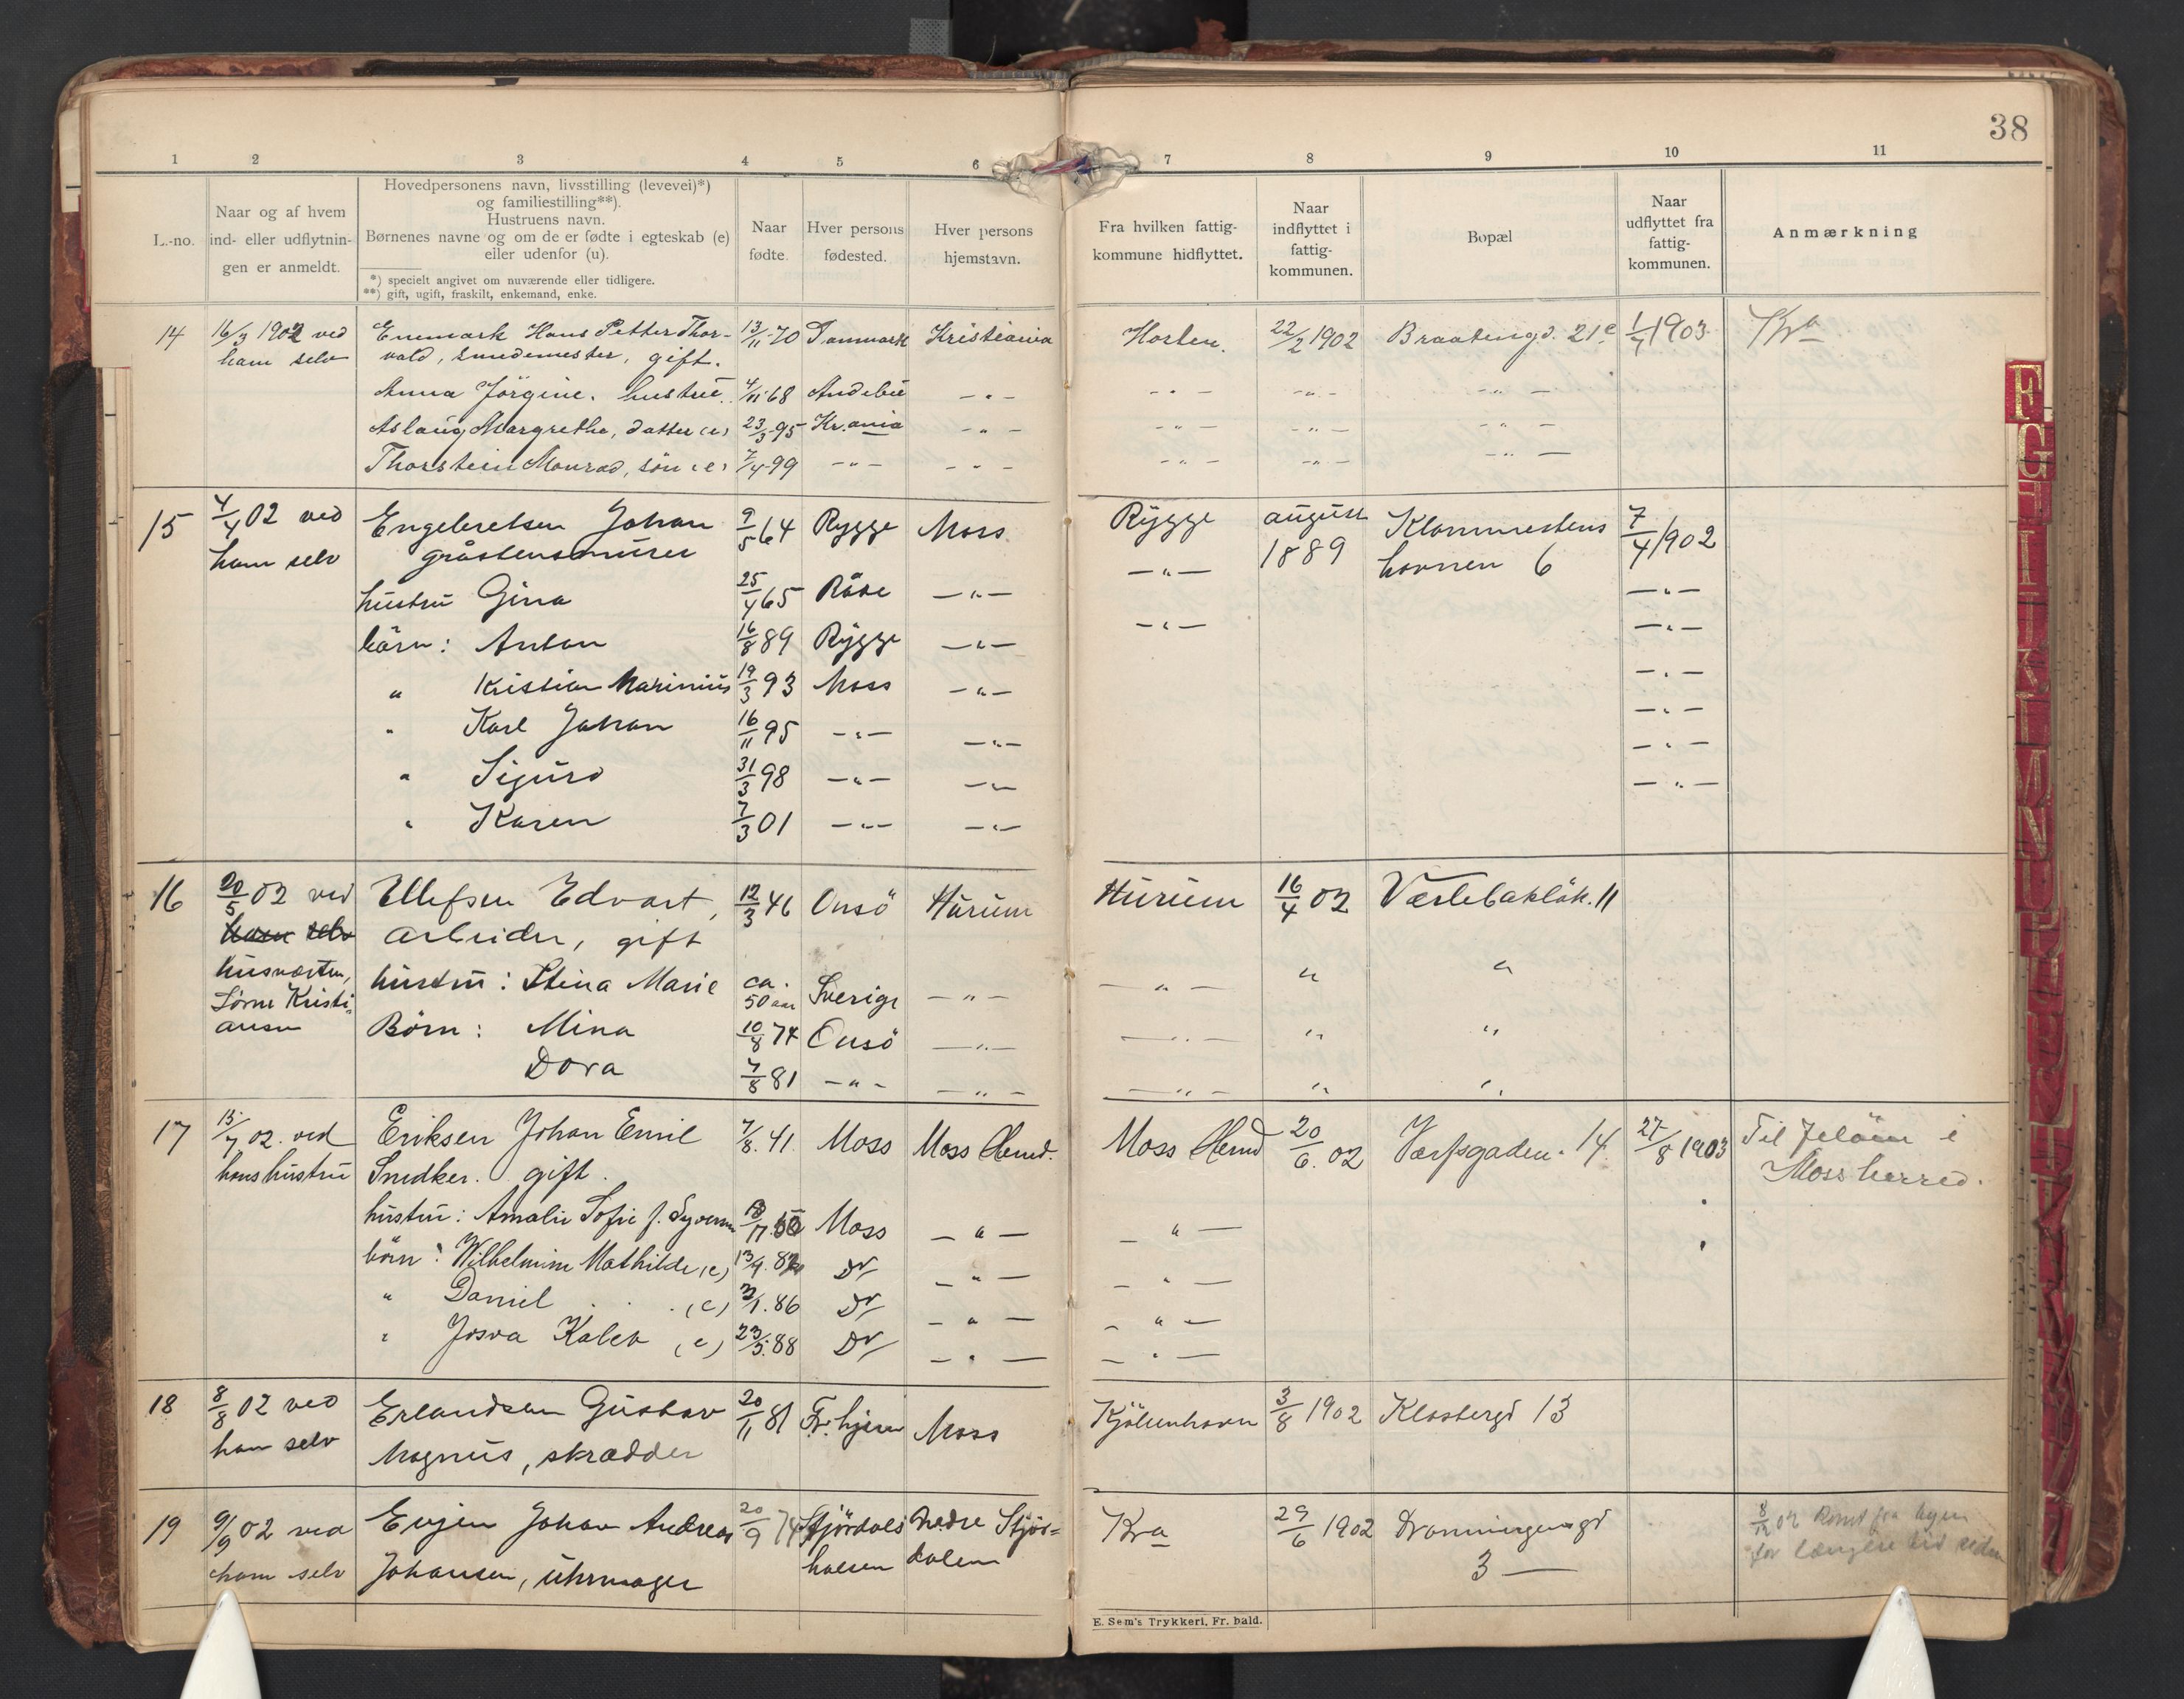 38
1 2 3 4 5 6 7 8 9 10 11
L.-no.
Naar og af hvem
ind- eller udflytnin-
gen er anmeldt.
Hovedpersonens navn, livsstilling (levevei)*)
og familiestilling**).
Hustruens navn.
Børnenes navne og om de er fødte i egteskab (e)
eller udenfor (u).
*) specielt angivet om nuværende eller tidligere.
**) gift, ugift, fraskilt, enkemand, enke.
Naar
fødte.
Hver persons
fødested.
Hver persons
hjemstavn.
Fra hvilken fattig-
kommune hidflyttet.
Naar
indflyttet i
fattig-
kommunen.
Bopæl
Naar
udflyttet fra
fattig-
kommunen.
Anmærkning
14 16/3 1902 ved Enemark Hans Petter Thor- 13/11-70 Danmark Kristiania Horten. 22/2 1902 Braatengd. 21c 1/7 1903 Kra
ham selv vald, smedemester, gift.
Anna Jörgine. hustru. 4/11-68 Andebu - " - - " - - " - - " -
Aslaug Margrethe, datter (e) 23/3-95 Kr.ania - " - - " - - " - - " -
Thorstein Monrad, sön (e) 7/4-99 - " - - " - - " - - " - - " -
15 4/4 02 ved Engebretsen Johan 9/5 64 Rygge Moss Rygge august Klommestens 7/4 1902
ham selv gråstensmurer - " - 1889 havnen 6
hustru Gina 25/4 65 Råde - " - - " -
börn: Anton 16/8 89 Rygge - " - - " - - " -
" Kristian Marinius 19/3 93 Moss - " - - " -
" Karl Johan 16/11 95 - " - - " - - " -
" Sigurd 31/3 98 - " - - " - - " -
" Karen 7/3 01 - " - - " - - " -
16 20/5 02 ved Ellefsen Edvart, 12/3 46 Onsö Hurum Hurum 16/4 02 Værlebakløk. 11
ham selv arbeider, gift
husværten, hustru: Stina Marie ca. 50 aar Sverige - " - - " - " "
Sörne Kristi- Börn: Mina 10/8 74 Onsö - " - - " - " "
ansen
Dora 7/8 81 - " - - " - - " - " "
17 15/7 02. ved Eriksen Johan Emil 7/8. 41. Moss Moss Herred. Moss Herred 20/6. 02 Værfsgaden. 14. 27/8 1903 Til Jelöen i
hans hustru Snedker. gift. Moss herred.
hustru: Amalie Sofie f. Syversen Moss - " - - " -
börn: Wilhelmine Mathilde (e) Do - " - - " -
" Daniel (e) 3/1. 86 Do - " - - " -
" Josva Kaleb (e) 23/5. 88 Do - " - - " -
18 8/8 02 ved Erlandsen Gustav 20/11 81 Fr.hjem Moss Kjöbenhavn 3/8 1902 Klostergd 13
ham selv Magnus, skrædder
19 9/9 02 ved Evjen Johan Andreas 20/9 74 Stjördals Nedre Stjör= Kra 29/6 1902 Dronningensgd 8/12 02 Romt fra byen
ham selv Johansen, uhrmager halsen dalen 3 — for længere tid siden
E. Sem's Trykkeri, Fr. hald.